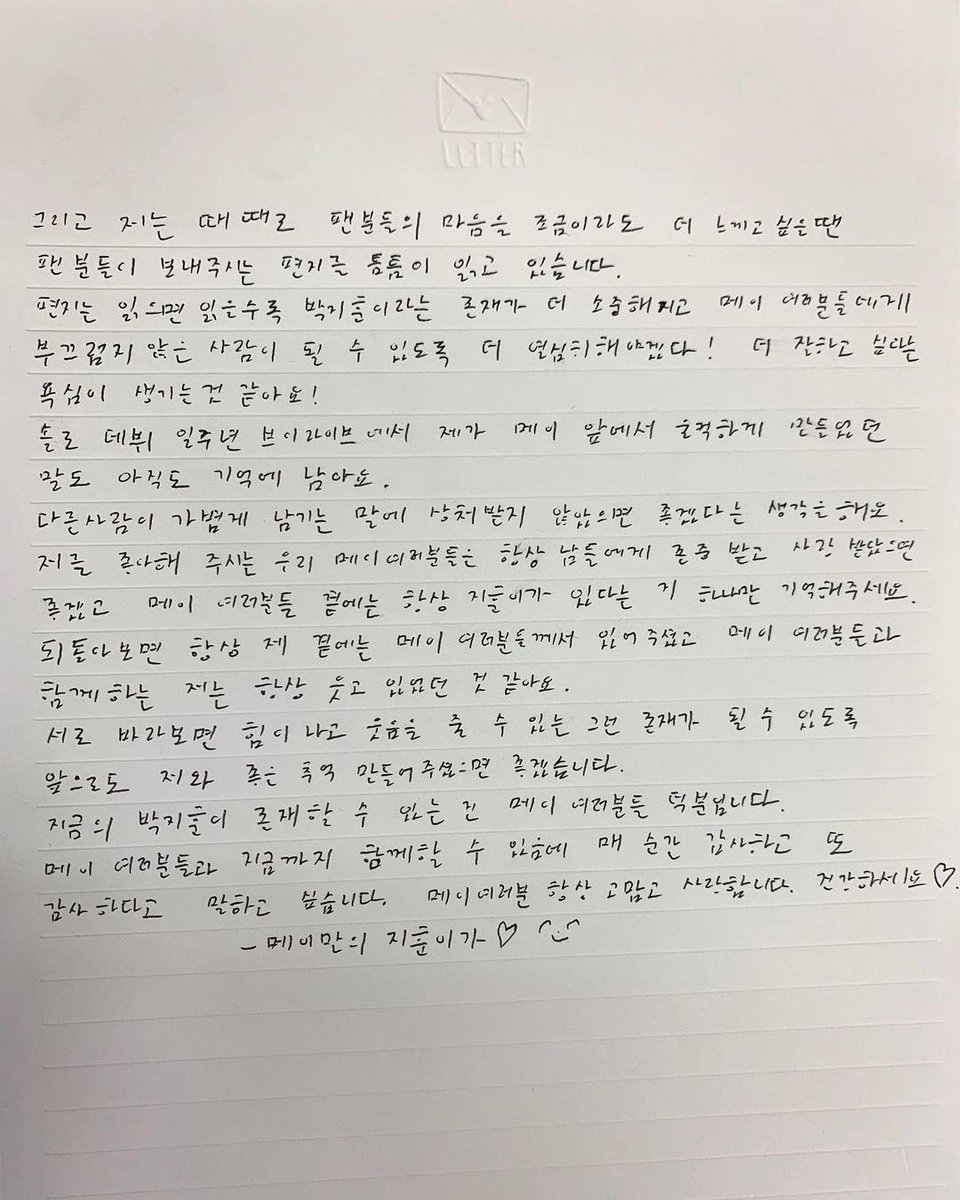 LETTER
그리고 저는 때때로 팬분들의 마음을 조금이라도 더 느끼고 싶을땐
팬분들이 보내주시는 편지를 틈틈이 읽고 있습니다.
편지는 읽으면 읽을수록 박지훈이라는 존재가 더 소중해지고 메이 여러분들에게
부끄럽지 않은 사람이 될 수 있도록 더 열심히해야겠다! 더 잘하고 싶다는
욕심이 생기는것 같아요!
솔로 데뷔 일주년 브이라이브에서 제가 메이 앞에서 울컥하게 만들었던
말도 아직도 기억에 남아요.
다른사람이 가볍게 남기는 말에 상처받지 않았으면 좋겠다는 생각을해요.
저를 좋아해 주시는 우리 메이여러분들은 항상 남들에게 존중 받고 사랑 받았으면
좋겠고 메이 여러분들 곁에는 항상 지훈이가 있다는 거 하나만 기억해주세요.
되돌아보면 항상 제 곁에는 메이 여러분들께서 있어주셨고 메이 여러분들과
함께하는 저는 항상 웃고 있었던 것 같아요.
서로 바라보면 힘이나고 웃음을 줄 수 있는 그런 존재가 될 수 있도록
앞으로도 저와 좋은 추억 만들어주셨으면 좋겠습니다.
지금의 박지훈이 존재할 수 있는 건 메이 여러분들 덕분입니다.
메이 여러분들과 지금까지 함께할 수 있음에 매 순간 감사하고 또
감사하다고 말하고 싶습니다. 메이여러분 항상 고맙고 사랑합니다. 건강하세요♡.
- 메이만의 지훈이가♡